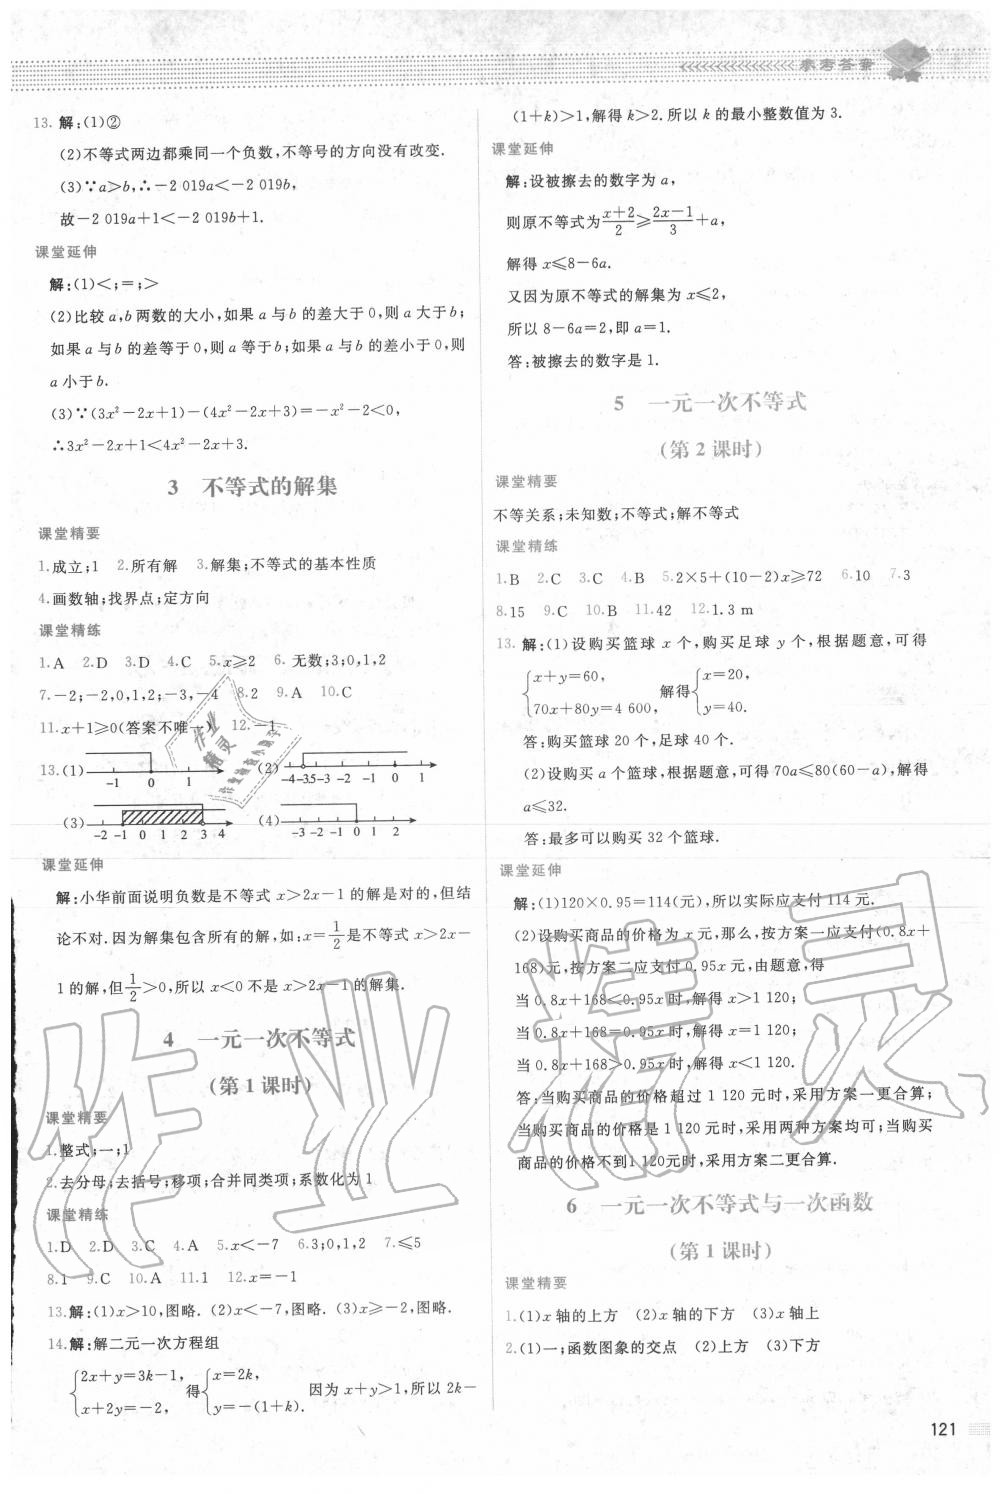 参考答案
13. 解:(1)②
(2)不等式两边都乘同一个负数,不等号的方向没有改变.
(3)∵a>b,∴-2 019a<-2 019b,
故-2 019a+1<-2 019b+1.
课堂延伸
解:(1)<;=;>
(2)比较 a,b 两数的大小,如果 a 与 b 的差大于 0,则 a 大于 b;
如果 a 与 b 的差等于 0,则 a 等于 b;如果 a 与 b 的差小于 0,则
a 小于 b.
(3)∵(3x²-2x+1)-(4x²-2x+3)=-x²-2<0,
∴3x²-2x+1<4x²-2x+3.
3 不等式的解集
课堂精要
1.成立;1 2.所有解 3.解集;不等式的基本性质
4.画数轴;找界点;定方向
课堂精练
1.A 2.D 3.D 4.C 5.x≥2 6. 无数;3;0,1,2
7.-2;-2,0,1,2;-3,-4 8.2 9.A 10.C
11.x+1≥0(答案不唯一) 12.-1
13.(1) -1 0 1 (2) -4-3.5-3 -2 -1 0 1
(3) -2 -1 0 1 2 3 4 (4) -3 -2 -1 0 1 2
课堂延伸
解:小华前面说明负数是不等式 x>2x-1 的解是对的,但结
论不对.因为解集包含所有的解,如:x=1/2是不等式 x>2x-
1 的解,但1/2>0,所以 x<0 不是 x>2x-1 的解集.
4 一元一次不等式
(第 1 课时)
课堂精要
1.整式;一;1
2.去分母;去括号;移项;合并同类项;系数化为 1
课堂精练
1.D 2.D 3.C 4.A 5.x<-7 6.3;0,1,2 7.≤5
8.1 9.C 10.A 11.1 12.x=-1
13.解:(1)x>10,图略. (2)x<-7,图略. (3)x≥-2,图略.
14.解:解二元一次方程组
{2x+y=3k-1, x+2y=-2, 得{x=2k, y=-(1+k). 因为 x+y>1,所以 2k-
(1+k)>1,解得 k>2.所以 k 的最小整数值为 3.
课堂延伸
解:设被擦去的数字为 a,
则原不等式为(x+2)/2≥(2x-1)/3+a,
解得 x≤8-6a.
又因为原不等式的解集为 x≤2,
所以 8-6a=2,即 a=1.
答:被擦去的数字是 1.
5 一元一次不等式
(第 2 课时)
课堂精要
不等关系;未知数;不等式;解不等式
课堂精练
1.B 2.C 3.C 4.B 5.2×5+(10-2)x≥72 6.10 7.3
8.15 9.C 10.B 11.42 12.1.3 m
13. 解:(1)设购买篮球 x 个,购买足球 y 个,根据题意,可得
{x+y=60, 70x+80y=4 600, 解得{x=20, y=40.
答:购买篮球 20 个,足球 40 个.
(2)设购买 a 个篮球,根据题意,可得 70a≤80(60-a),解得
a≤32.
答:最多可以购买 32 个篮球.
课堂延伸
解:(1)120×0.95=114(元),所以实际应支付 114 元.
(2)设购买商品的价格为 x 元,那么,按方案一应支付(0.8x+
168)元,按方案二应支付 0.95x 元,由题意,得
当 0.8x+168<0.95x 时,解得 x>1 120;
当 0.8x+168=0.95x 时,解得 x=1 120;
当 0.8x+168>0.95x 时,解得 x<1 120.
答:当购买商品的价格超过 1 120 元时,采用方案一更合算;
当购买商品的价格是 1 120 元时,采用两种方案均可;当购买
商品的价格不到1 120元时,采用方案二更合算.
6 一元一次不等式与一次函数
(第 1 课时)
课堂精要
1.(1)x 轴的上方 (2)x 轴的下方 (3)x 轴上
2.(1)一;函数图象的交点 (2)上方 (3)下方
121
作业精灵
作业
精灵